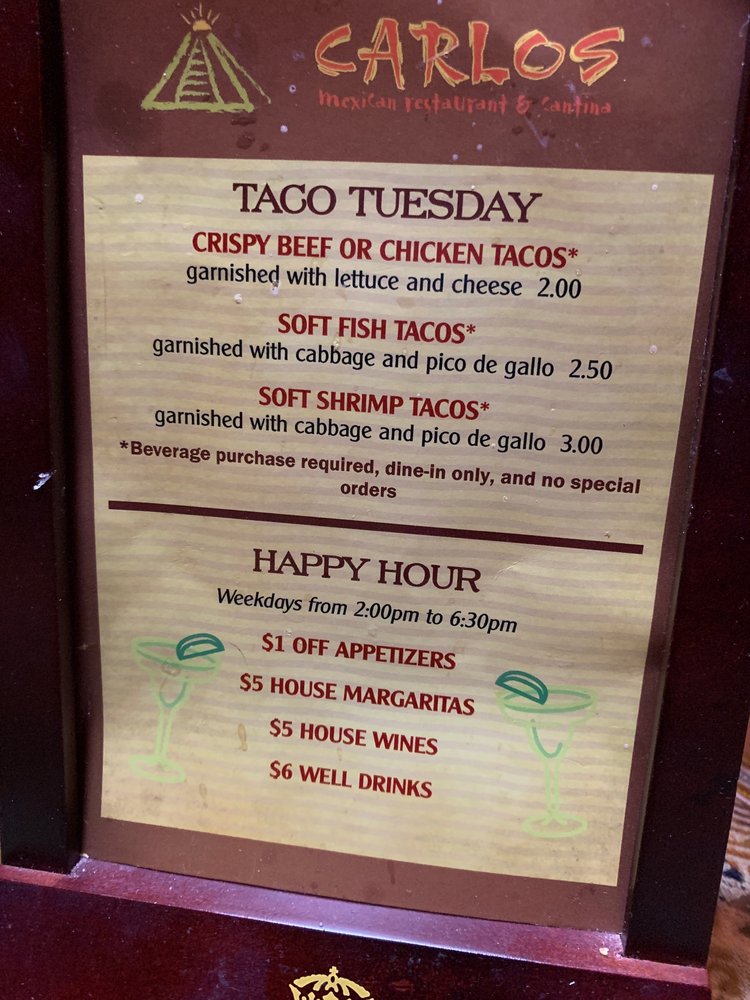 CARLOS
Mexican restaurant & Cantina
TACO TUESDAY
CRISPY BEEF OR CHICKEN TACOS*
garnished with lettuce and cheese 2.00
SOFT FISH TACOS*
garnished with cabbage and pico de gallo 2.50
SOFT SHRIMP TACOS*
garnished with cabbage and pico de gallo 3.00
*Beverage purchase required, dine-in only, and no special
orders
HAPPY HOUR
Weekdays from 2:00pm to 6:30pm
$1 OFF APPETIZERS
$5 HOUSE MARGARITAS
$5 HOUSE WINES
$6 WELL DRINKS